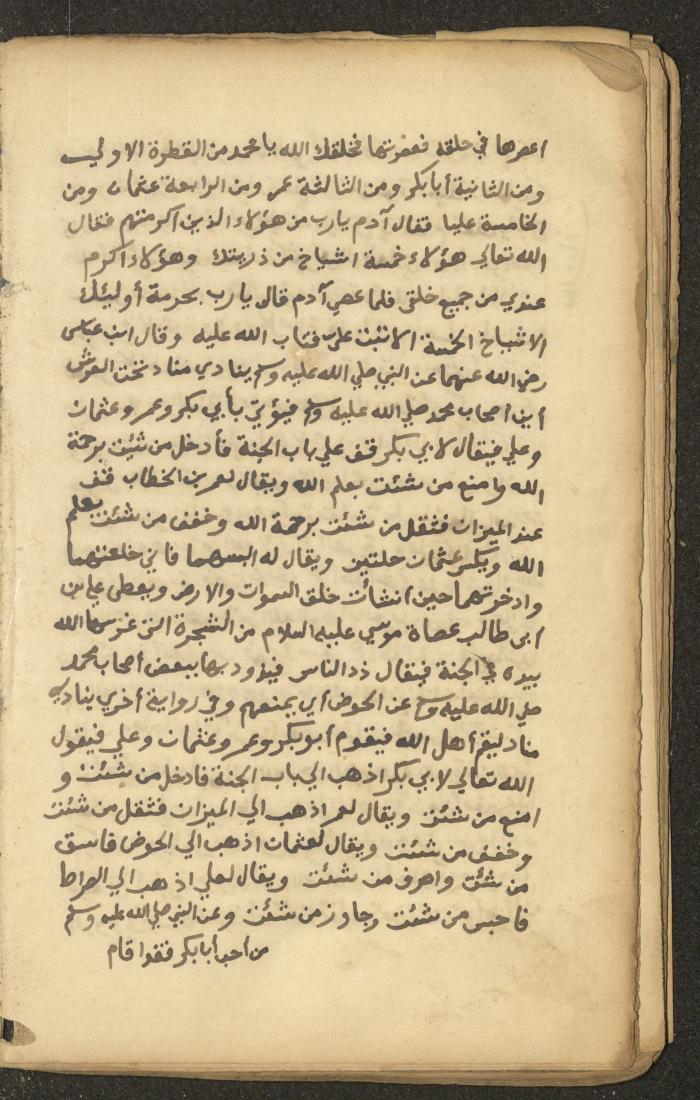 اعصرها في حلقه فعصرتها فخلقك الله يا محمد من القطرة الاولي
ومن الثانية أبا بكر ومن الثالثة عمر ومن الرابعة عثمان ومن
الخامسة عليا فقال آدم يارب من هؤلاء الذين اكرمتهم فقال
الله تعالي هؤلاء خمسة اشياخ من ذريتك وهؤلاء اكرم
عندي من جميع خلقي فلما عصي آدم قال يا رب بحرمة أوليئك
الاشياخ الخمسة الا تبت علي فتاب الله عليه وقال ابن عباس
رضي الله عنهما عن النبي صلي الله عليه وسلم ينادي مناد تحت العرش
أين أصحاب محمد صلي الله عليه وسلم فيؤتي بأبي بكر وعمر وعثمان
وعلي فيقال لابي بكر قف علي باب الجنة فأدخل من شئت برحمة
الله وامنع من شئت بعلم الله ويقال لعمر بن الخطاب قف
عند الميزان فثقل من شئت برحمة الله وخفف من شئت بعلم
الله ويكسي عثمان حلتين ويقال له البسهما فاني خلقتهما
وادخرتهما حين انشأت خلق السموات والارض ويعطي علي بن
أبي طالب عصاة موسي عليه السلام من الشجرة التي غرسها الله
بيده في الجنة فيقال ذد الناس فيذود بها يبعض أصحاب محمد
صلي الله عليه وسلم عن الحوض أي يمنعهم وفي رواية أخري ينادي
مناد ليقم أهل الله فيقوم أبو بكر وعمر وعثمان وعلي فيقول
الله تعالي لابي بكر اذهب الي باب الجنة فادخل من شئت و
امنع من شئت ويقال لعمر اذهب الي الميزان فثقل من شئت
وخفف من شئت ويقال لعثمان اذهب الي الحوض فاسق
من شئت واصرف من شئت ويقال لعلي اذهب الي الصراط
فاحبس من شئت وجاوز من شئت وعن النبي صلي الله عليه وسلم
من أحب أبا بكر فقد اقام